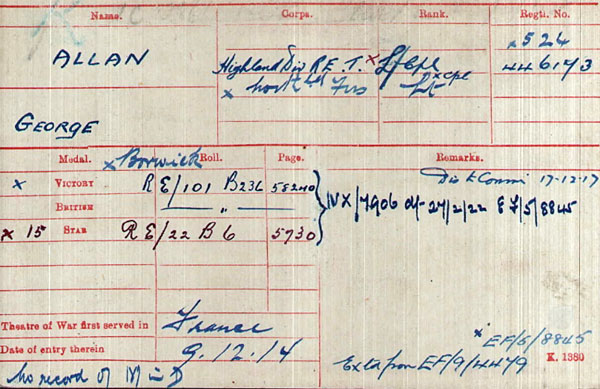 Name. Corps. Rank. Regtl. No.
ALLAN
Highland Div R.E. T. x L/Cpl x 524
x Fus x Cpl Lt 446173
GEORGE
x Borwick
Medal. Roll. Page. Remarks.
x VICTORY RE/101 B236 58240 Dis to Commn 17-12-17
BRITISH — " — IVX/7906 27/2/22 EF/5/8845
x 15 STAR RE/22 B 6 5730
Theatre of War first served in France
x EF/5/8845
Date of entry therein 9.12.14 K. 1380
Ext from EF/9/4479
No record of M in D